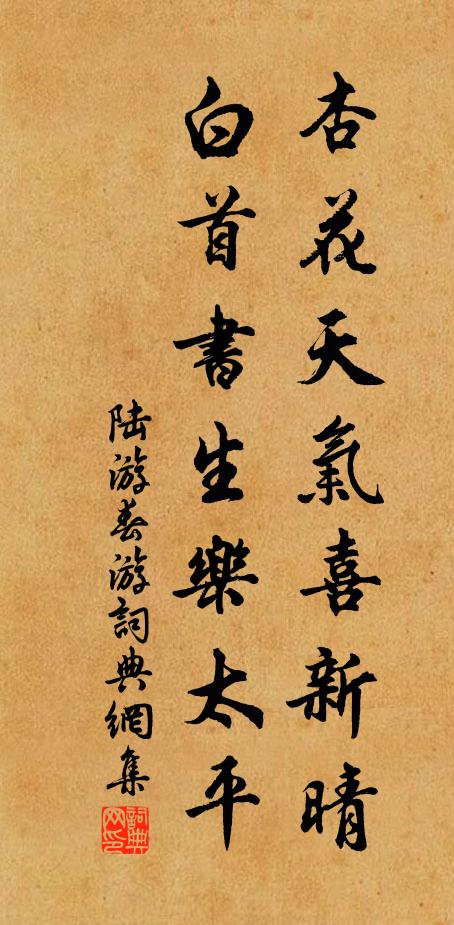 杏花天氣喜新晴
白首書生樂太平
陆游春游詞典網集
詞典网印